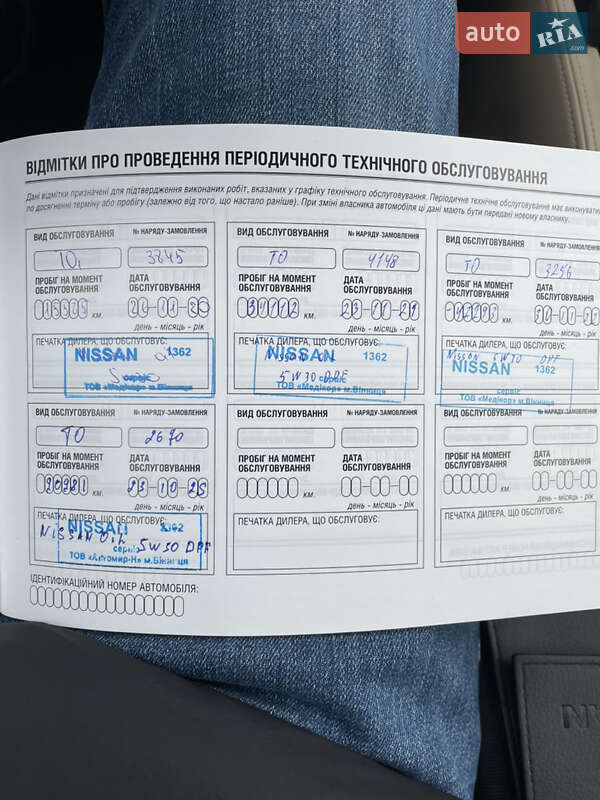 auto RIA.com
ВІДМІТКИ ПРО ПРОВЕДЕННЯ ПЕРІОДИЧНОГО ТЕХНІЧНОГО ОБСЛУГОВУВАННЯ
Дані відмітки призначені для підтвердження виконаних робіт, вказаних у графіку технічного обслуговування. Періодичне технічне обслуговування має виконувати
по досягненні терміну або пробігу (залежно від того, що настало раніше). При зміні власника автомобіля ці дані мають бути передані новому власнику.
ВИД ОБСЛУГОВУВАННЯ № НАРЯДУ-ЗАМОВЛЕННЯ
3845
ПРОБІГ НА МОМЕНТ ОБСЛУГОВУВАННЯ ДАТА ОБСЛУГОВУВАННЯ
км.
день - місяць - рік
ПЕЧАТКА ДИЛЕРА, ЩО ОБСЛУГОВУЄ:
NISSAN 1362
сервіс
ТОВ «Медікор» м.Вінниця
ВИД ОБСЛУГОВУВАННЯ № НАРЯДУ-ЗАМОВЛЕННЯ
ТО 4148
ПРОБІГ НА МОМЕНТ ОБСЛУГОВУВАННЯ ДАТА ОБСЛУГОВУВАННЯ
км. 23-01-21
день - місяць - рік
ПЕЧАТКА ДИЛЕРА, ЩО ОБСЛУГОВУЄ:
NISSAN 1362
5W30 DPF
сервіс
ТОВ «Медікор» м.Вінниця
ВИД ОБСЛУГОВУВАННЯ № НАРЯДУ-ЗАМОВЛЕННЯ
ТО 3256
ПРОБІГ НА МОМЕНТ ОБСЛУГОВУВАННЯ ДАТА ОБСЛУГОВУВАННЯ
км.
день - місяць - рік
ПЕЧАТКА ДИЛЕРА, ЩО ОБСЛУГОВУЄ:
Nissan 5W30 DPF
NISSAN 1362
сервіс
ТОВ «Медікор» м.Вінниця
ВИД ОБСЛУГОВУВАННЯ № НАРЯДУ-ЗАМОВЛЕННЯ
ТО 2670
ПРОБІГ НА МОМЕНТ ОБСЛУГОВУВАННЯ ДАТА ОБСЛУГОВУВАННЯ
км. 23-10-25
день - місяць - рік
ПЕЧАТКА ДИЛЕРА, ЩО ОБСЛУГОВУЄ:
NISSAN 1362
NISSAN OIL 5W30 DPF
сервіс
ТОВ «Автомир-Н» м.Вінниця
ВИД ОБСЛУГОВУВАННЯ № НАРЯДУ-ЗАМОВЛЕННЯ
ПРОБІГ НА МОМЕНТ ОБСЛУГОВУВАННЯ ДАТА ОБСЛУГОВУВАННЯ
км.
день - місяць - рік
ПЕЧАТКА ДИЛЕРА, ЩО ОБСЛУГОВУЄ:
ВИД ОБСЛУГОВУВАННЯ № НАРЯДУ-ЗАМОВЛЕННЯ
ПРОБІГ НА МОМЕНТ ОБСЛУГОВУВАННЯ ДАТА ОБСЛУГОВУВАННЯ
км.
день - місяць - рік
ПЕЧАТКА ДИЛЕРА, ЩО ОБСЛУГОВУЄ:
ІДЕНТИФІКАЦІЙНИЙ НОМЕР АВТОМОБІЛЯ: